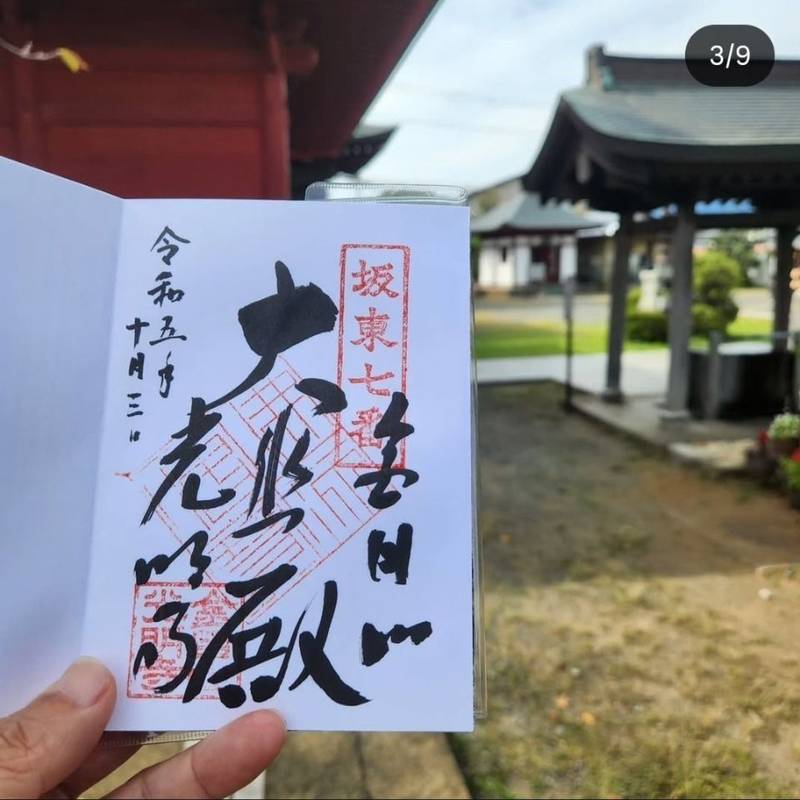 3/9
坂東七番
金目山
大悲殿
光明寺
令和五年
十月三日